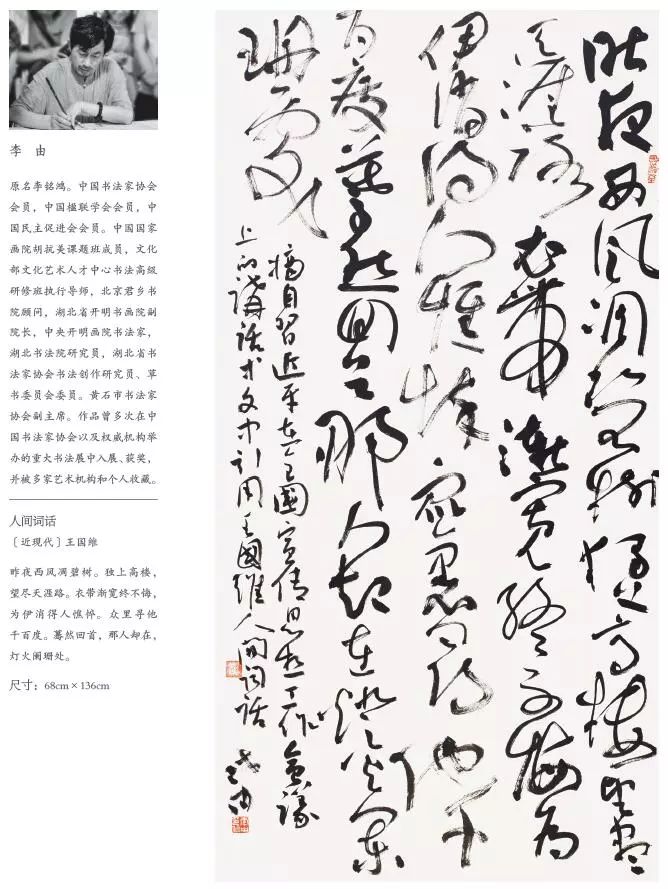 李 由
原名李铭鸿。中国书法家协会
会员，中国楹联学会会员，中
国民主促进会会员。中国国家
画院胡抗美课题班成员，文化
部文化艺术人才中心书法高级
研修班执行导师，北京君乡书
院顾问，湖北省开明书画院副
院长，中央开明画院书法家，
湖北书法院研究员，湖北省书
法家协会书法创作研究员、草
书委员会委员。黄石市书法家
协会副主席。作品曾多次在中
国书法家协会以及权威机构举
办的重大书法展中入展、获奖，
并被多家艺术机构和个人收藏。
人间词话
〔近现代〕王国维
昨夜西风凋碧树。独上高楼，
望尽天涯路。衣带渐宽终不悔，
为伊消得人憔悴。众里寻他
千百度。蓦然回首，那人却在，
灯火阑珊处。
尺寸：68cm×136cm
昨夜西风凋碧树独上高楼望尽
天涯路衣带渐宽终不悔为
伊消得人憔悴众里寻他千
百度蓦然回首那人却在灯火阑
珊处
摘自习近平在全國宣传思想工作会议
上的讲话中引用王國維人间词话 李由